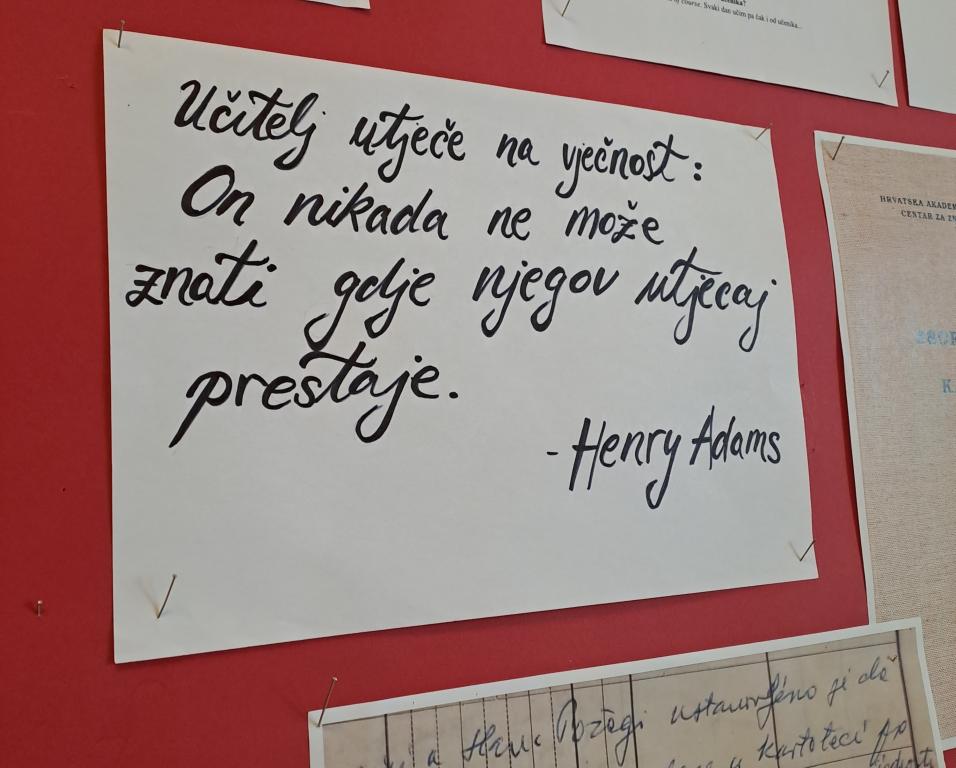 of course. Svaki dan učim pa čak i od učenika...
Učitelj utječe na vječnost:
On nikada ne može
znati gdje njegov utjecaj
prestaje.
- Henry Adams
HRVATSKA AKADEM
CENTAR ZA ZN
K.
Požegi ustanovljeno je da
u kartoteci po